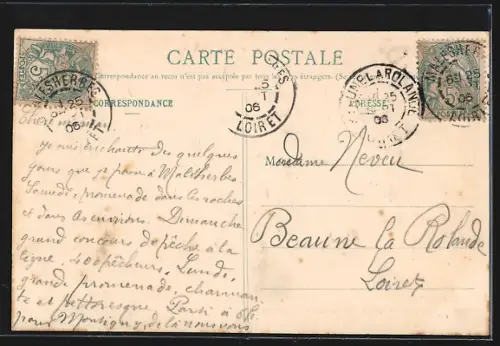 CARTE POSTALE
La Correspondance au recto n'est pas acceptée par tous les pays étrangers.
CORRESPONDANCE
ADRESSE
MALESHERBES
25
06
LOIRET
BEAUNE-LA-ROLANDE
25
06
LOIRET
MALESHERBES
25
06
Chère maman
Je suis enchanté des quelques
jours que je passe à Malesherbes
Samedi, promenade dans les roches
et dans les environs. Dimanche
grand concours de pêche à la
ligne, 600 pêcheurs, Lundi,
grande promenade, charman
te et pittoresque. Parti à 6h.
pour Montigny, de là nous
Madame Neveu
Beaune la Rolande
Loiret